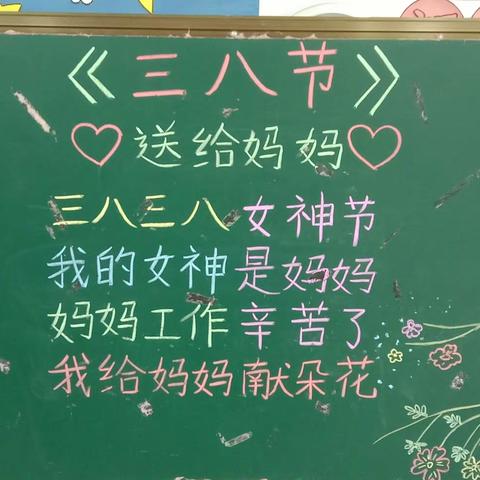 《三八节》
送给妈妈
三八三八女神节
我的女神是妈妈
妈妈工作辛苦了
我给妈妈献朵花